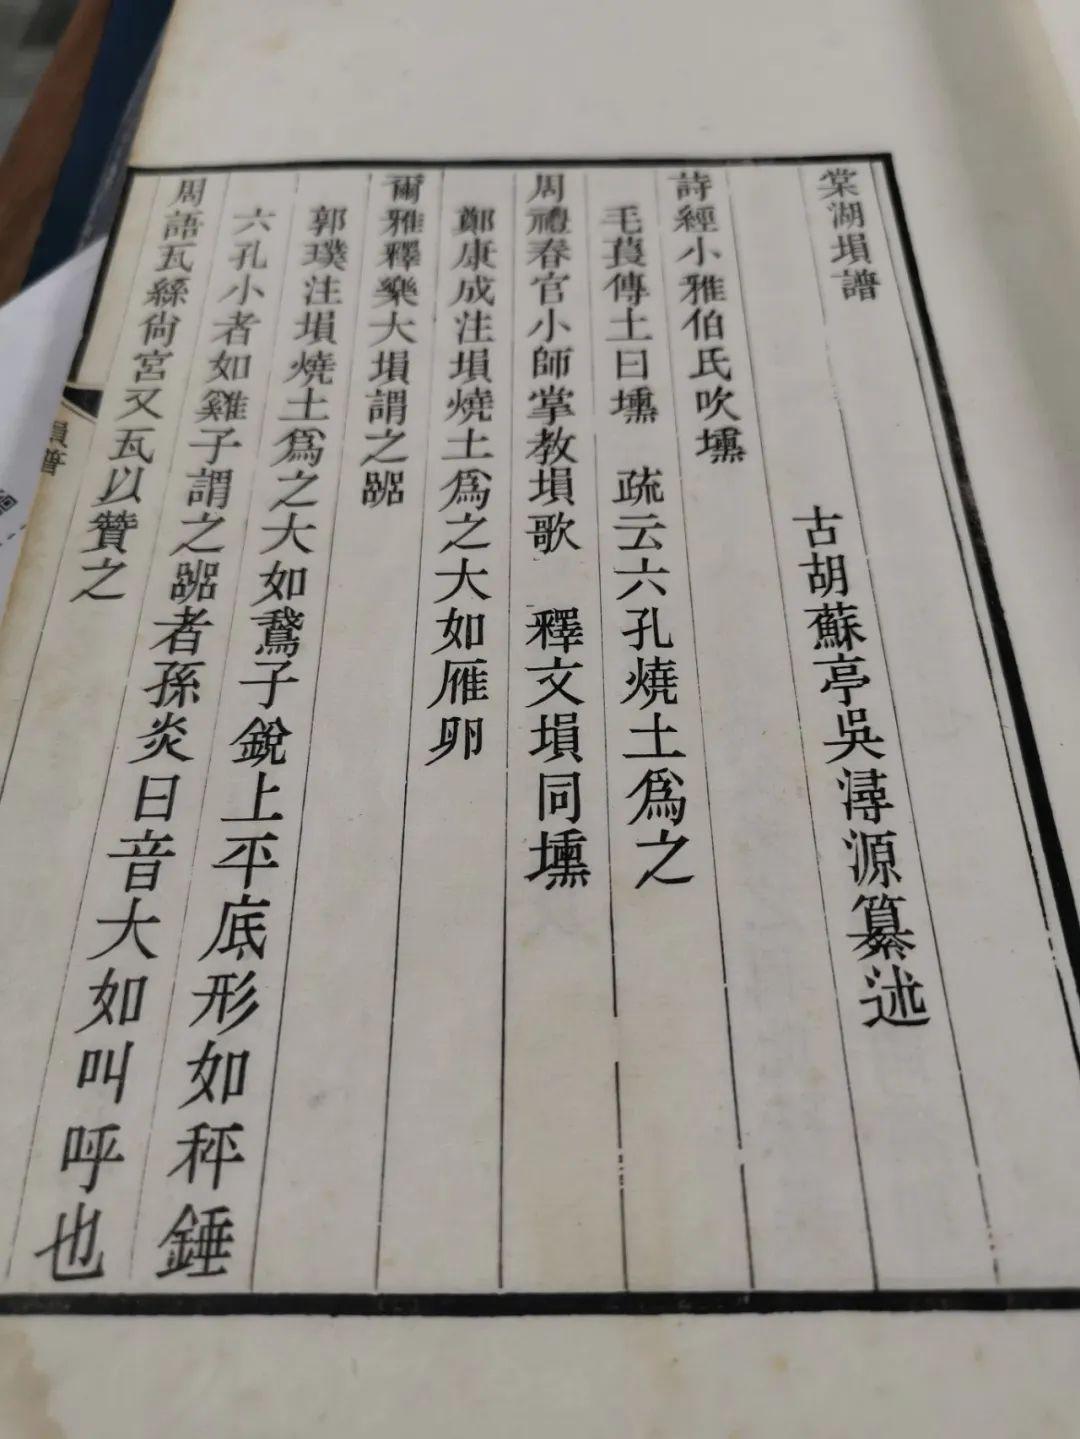 棠湖塤譜
古胡蘇亭吳潯源纂述
詩經小雅伯氏吹壎
毛萇傳土曰壎　疏云六孔燒土爲之
周禮春官小師掌教塤歌　釋文塤同壎
鄭康成注塤燒土爲之大如雁卵
爾雅釋樂大塤謂之嘂
郭璞注塤燒土爲之大如鵞子銳上平底形如秤錘
六孔小者如雞子謂之嘂者孫炎曰音大如叫呼也
周語瓦絲尙宮又瓦以贊之
塤譜